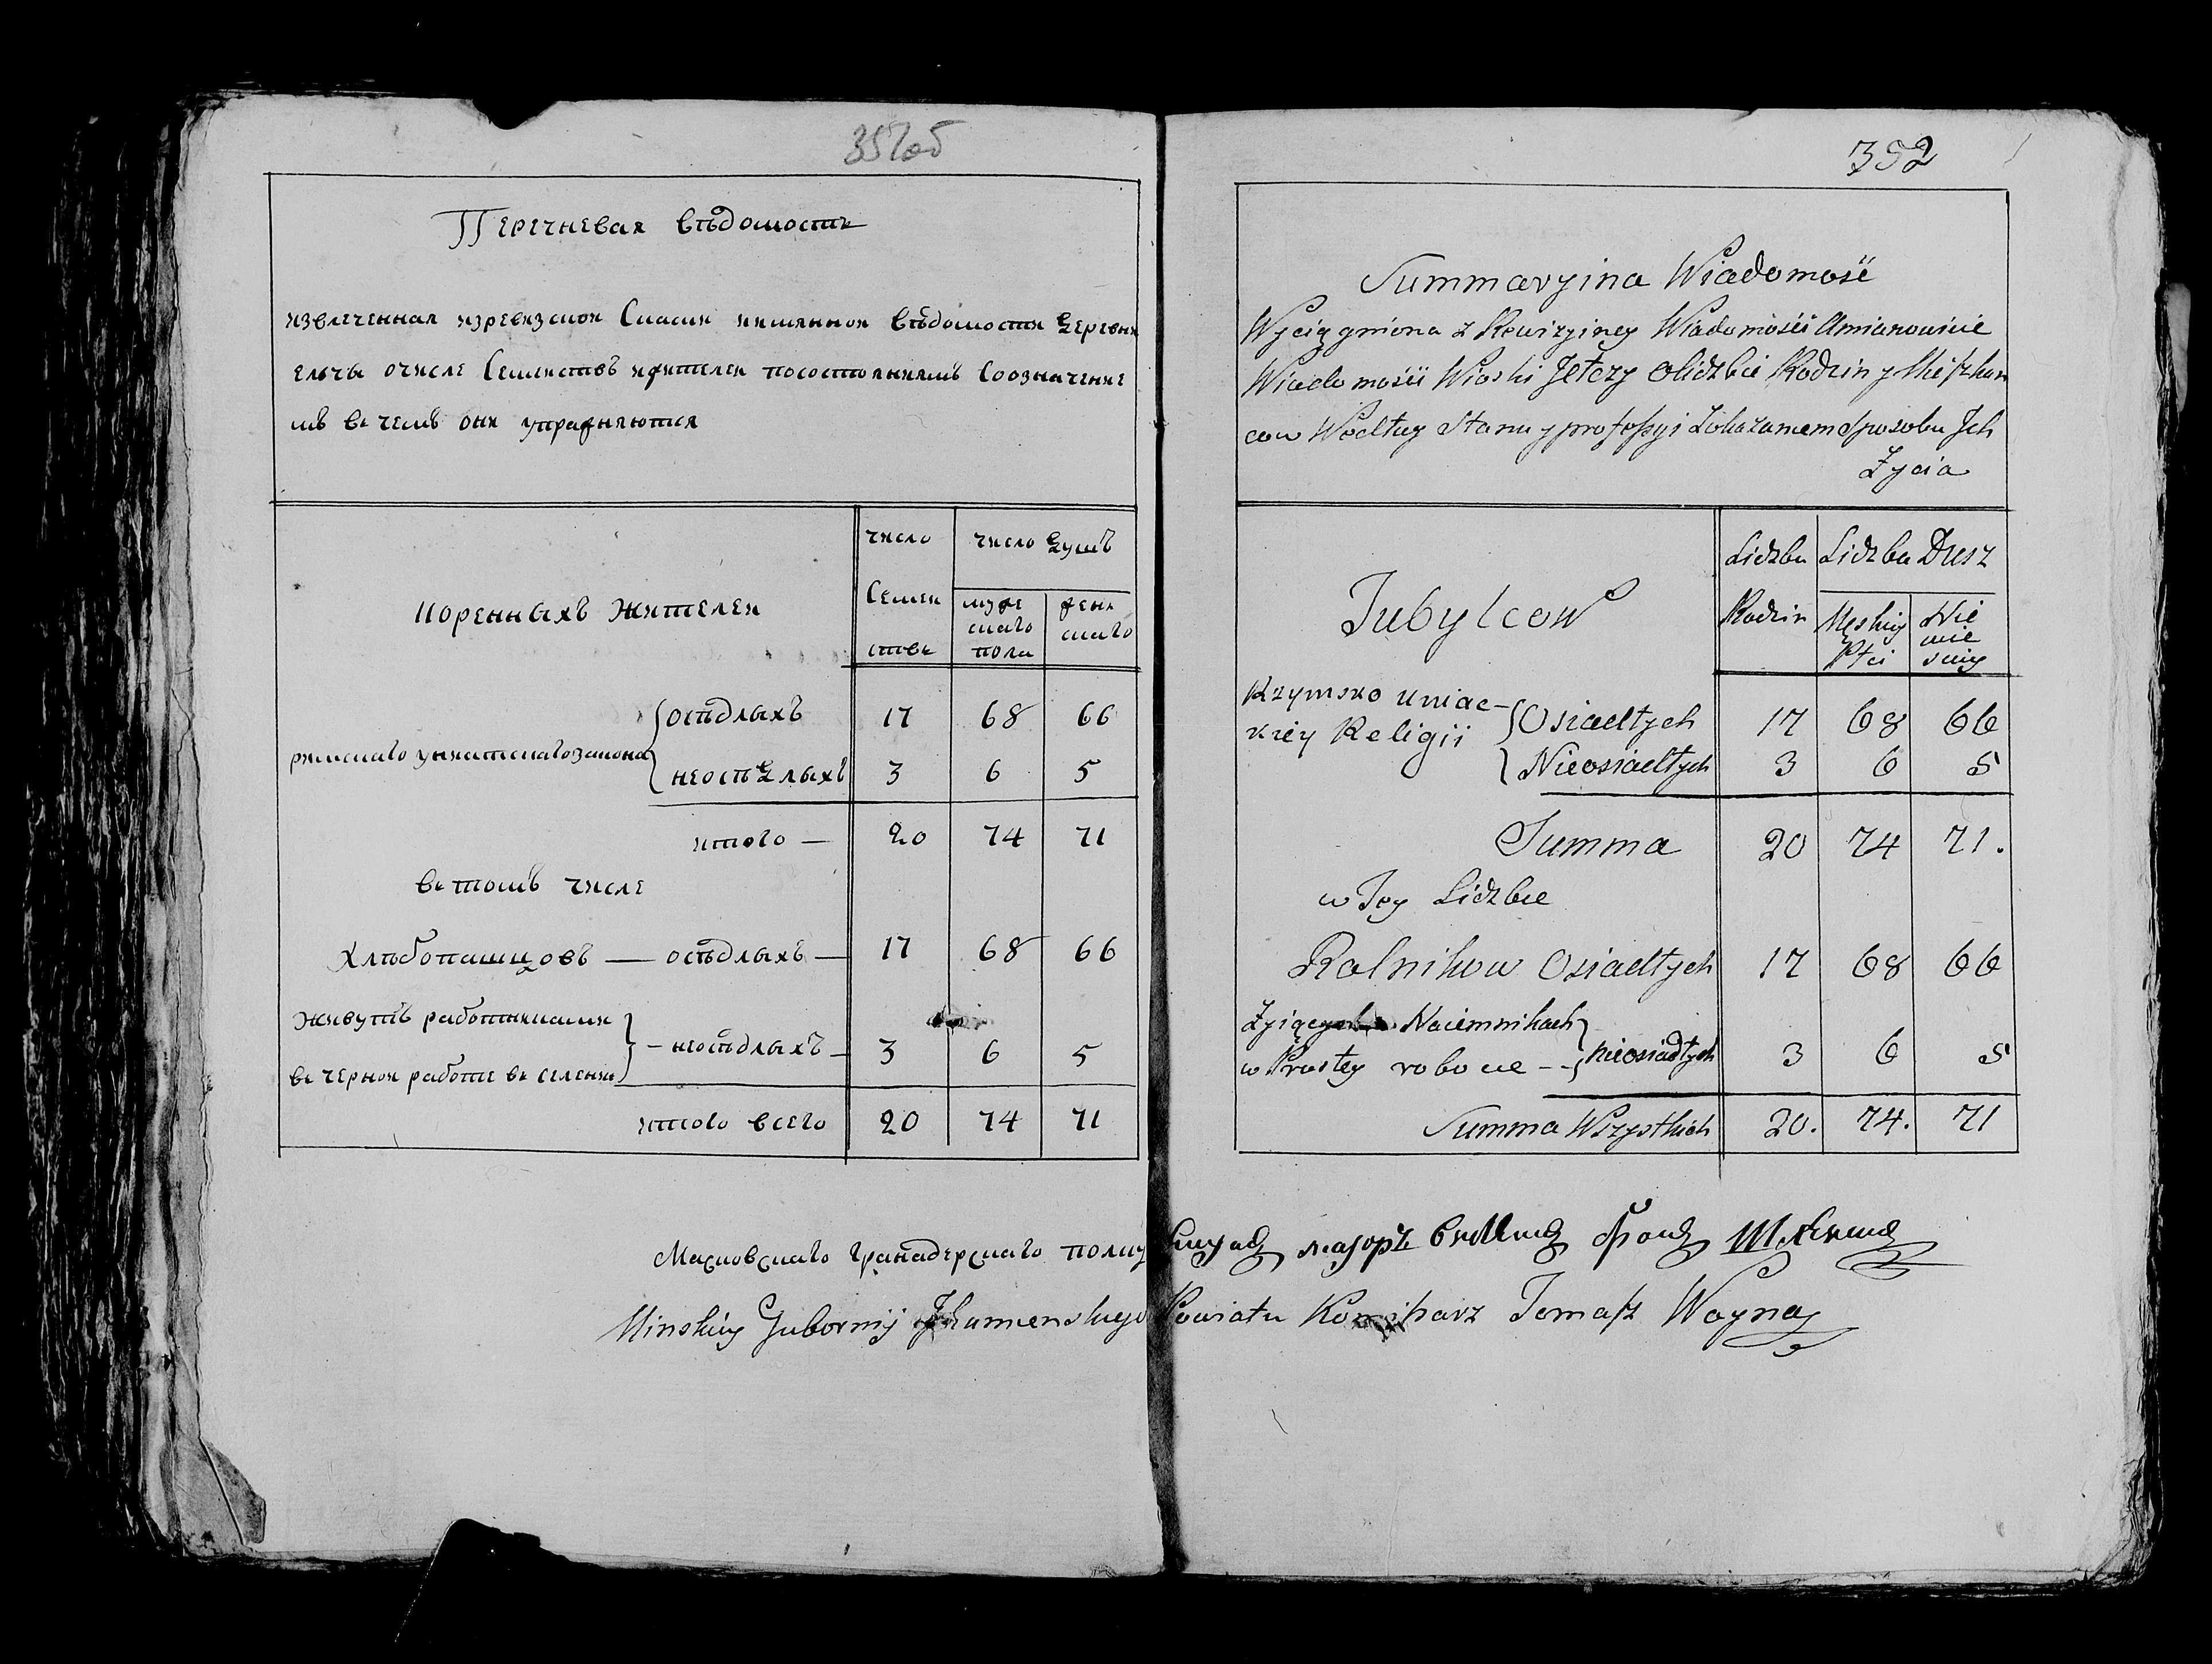 351об
Перечневая вѣдомость
извлеченная изревизскои Скаски имяннои вѣдомости деревни
ельчы очисле Семиствъ ижителеи посостояниямъ Соозначение
мъ вь чемъ они упражняются
число
Семеи
ства
число душъ
муже
скаго
пола
жена
скаго
коренныхъ жителеи
римскаго униатскагозакона
{осѣдлыхъ 17 68 66
неосѣдлыхъ 3 6 5
итого — 20 74 71
вь томъ числе
Хлѣбопашцовъ — осѣдлыхъ — 17 68 66
живутъ работниками
вь чернои работе вь селении} — неосѣдлыхъ — 3 6 5
итого всего 20 74 71
Московскаго гранадерскаго полку
352
Summaryina Wiadomość
Wyciągniona z Rewizyiney Wiadomości
Wiadomości Wioski Jelczy Olidzbie Rodzin y Mieszkan
cow Według Stanu y professyi Zokazaniem Sposobu Jch
Zycia
Lidzba
Rodzin
Lidzba Dusz
Męskiy
Płci
Nie
wie
sciey
Tubylcow
Rzymsko uniac-
kiey Religii
{Osiadłych 17 68 66
Nieosiadłych 3 6 5
Summa 20 74 71.
w Tey Lidzbie
Rolnikow Osiadłych 17 68 66
Naiemnikach
w Prostey robocie - - } nieosiadłych 3 6 5
Summa Wszystkich 20. 74. 71
маіоръ
Minskiey Gubernij Jhumenskiego Powiatu Komissarz Tomasz Woyna